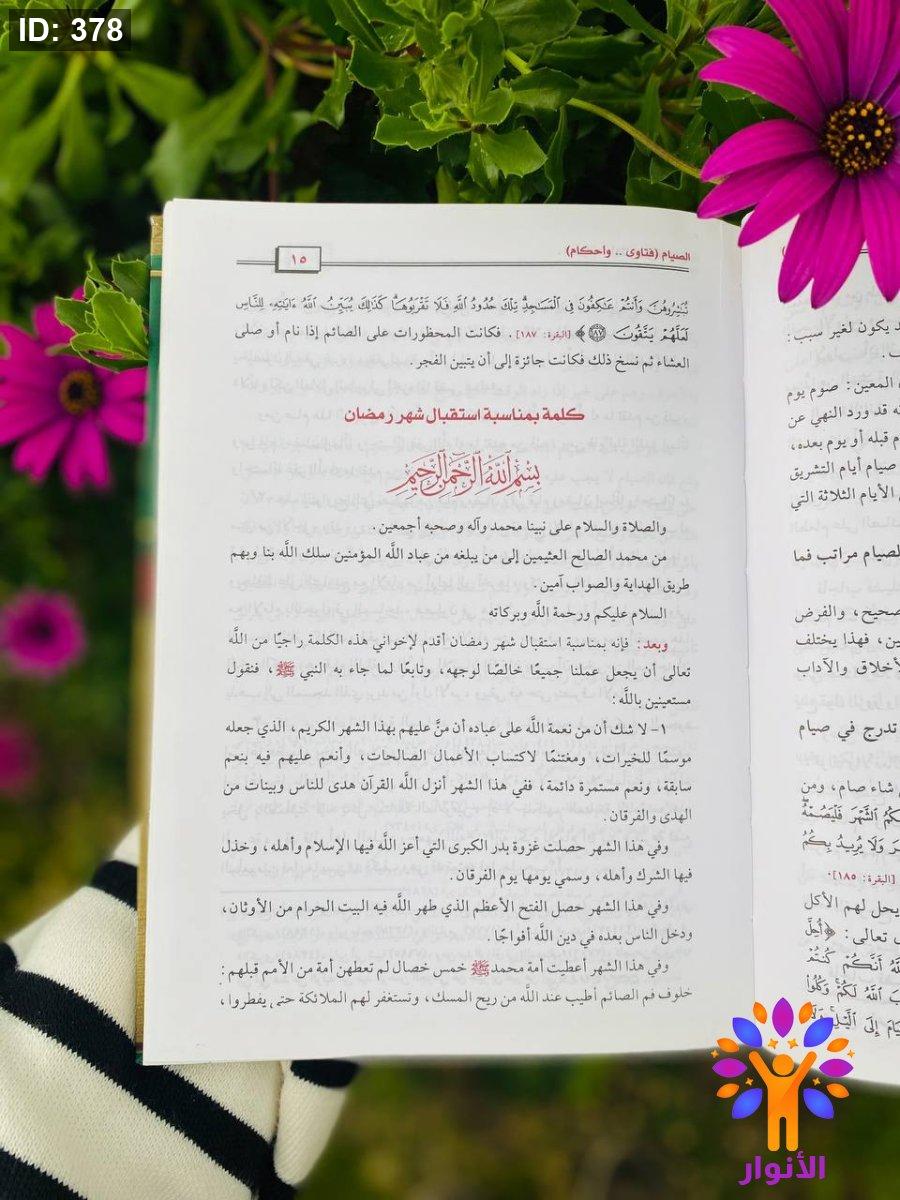 ID: 378
الصيام (فتاوى .. وأحكام)
١٥
تُبَٰشِرُوهُنَّ وَأَنتُمْ عَٰكِفُونَ فِى ٱلْمَسَٰجِدِ تِلْكَ حُدُودُ ٱللَّهِ فَلَا تَقْرَبُوهَا كَذَٰلِكَ يُبَيِّنُ ٱللَّهُ ءَايَٰتِهِۦ لِلنَّاسِ
لَعَلَّهُمْ يَتَّقُونَ ﴿١٨٧﴾ [البقرة: ١٨٧]. فكانت المحظورات على الصائم إذا نام أو صلى
العشاء ثم نسخ ذلك فكانت جائزة إلى أن يتبين الفجر.
كلمة بمناسبة استقبال شهر رمضان
بسم الله الرحمن الرحيم
والصلاة والسلام على نبينا محمد وآله وصحبه أجمعين.
من محمد الصالح العثيمين إلى من يبلغه من عباد اللَّه المؤمنين سلك اللَّه بنا وبهم
طريق الهداية والصواب آمين.
السلام عليكم ورحمة اللَّه وبركاته
وبعد: فإنه بمناسبة استقبال شهر رمضان أقدم لإخواني هذه الكلمة راجيًا من اللَّه
تعالى أن يجعل عملنا جميعًا خالصًا لوجهه، وتابعًا لما جاء به النبي ﷺ، فنقول
مستعينين باللَّه:
١- لا شك أن من نعمة اللَّه على عباده أن منَّ عليهم بهذا الشهر الكريم، الذي جعله
موسمًا للخيرات، ومغتنمًا لاكتساب الأعمال الصالحات، وأنعم عليهم فيه بنعم
سابقة، ونعم مستمرة دائمة، ففي هذا الشهر أنزل اللَّه القرآن هدى للناس وبينات من
الهدى والفرقان.
وفي هذا الشهر حصلت غزوة بدر الكبرى التي أعز اللَّه فيها الإسلام وأهله، وخذل
فيها الشرك وأهله، وسمي يومها يوم الفرقان.
وفي هذا الشهر حصل الفتح الأعظم الذي طهر اللَّه فيه البيت الحرام من الأوثان،
ودخل الناس بعده في دين اللَّه أفواجًا.
وفي هذا الشهر أعطيت أمة محمد ﷺ خمس خصال لم تعطهن أمة من الأمم قبلهم:
خلوف فم الصائم أطيب عند اللَّه من ريح المسك، وتستغفر لهم الملائكة حتى يفطروا،
يكون لغير سبب:
المعين: صوم يوم
قد ورد النهي عن
قبله أو يوم بعده،
صيام أيام التشريق
الأيام الثلاثة التي
لصيام مراتب فما
صحيح، والفرض
فهذا يختلف
لأخلاق والآداب
تدرج في صيام
شاء صام، ومن
ٱلشَّهْرَ فَلْيَصُمْهُ
وَلَا يُرِيدُ بِكُمُ
[البقرة: ١٨٥].
يحل لهم الأكل
تعالى: ﴿أُحِلَّ
أَنَّكُمْ كُنتُمْ
ٱللَّهُ لَكُمْ وَكُلُوا۟
إِلَى ٱلَّيْلِ وَلَا
الأنوار